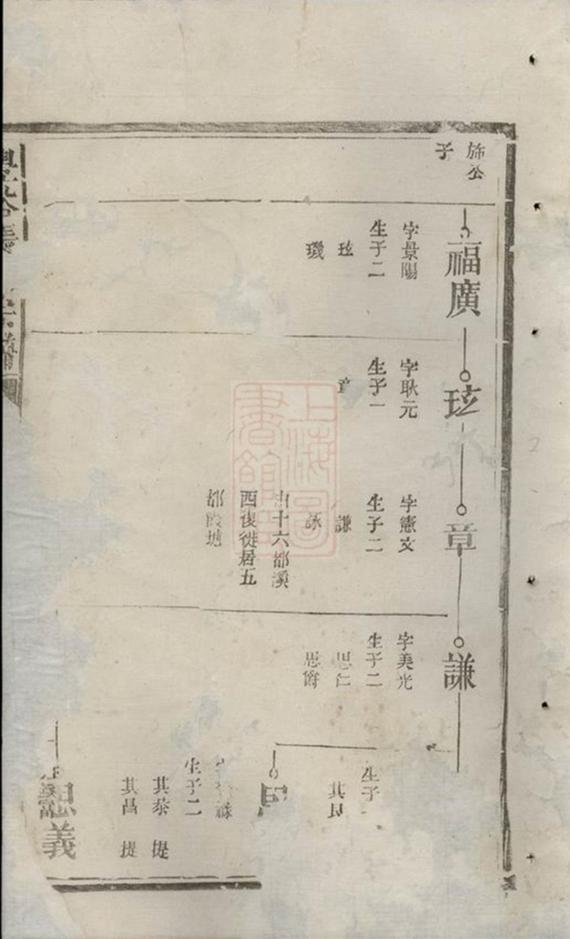 旂公
子
福廣
字景陽
生子二
玹
璣
玹
字耿元
生子一
章
章
字憲文
生子二
謙
詠
由十六都溪
西復徙居五
都
塘
謙
字美光
生子二
思仁
思爵
生子
其昆
思
生子二
其泰 提
其昌 提
思義
上海圖
書館藏